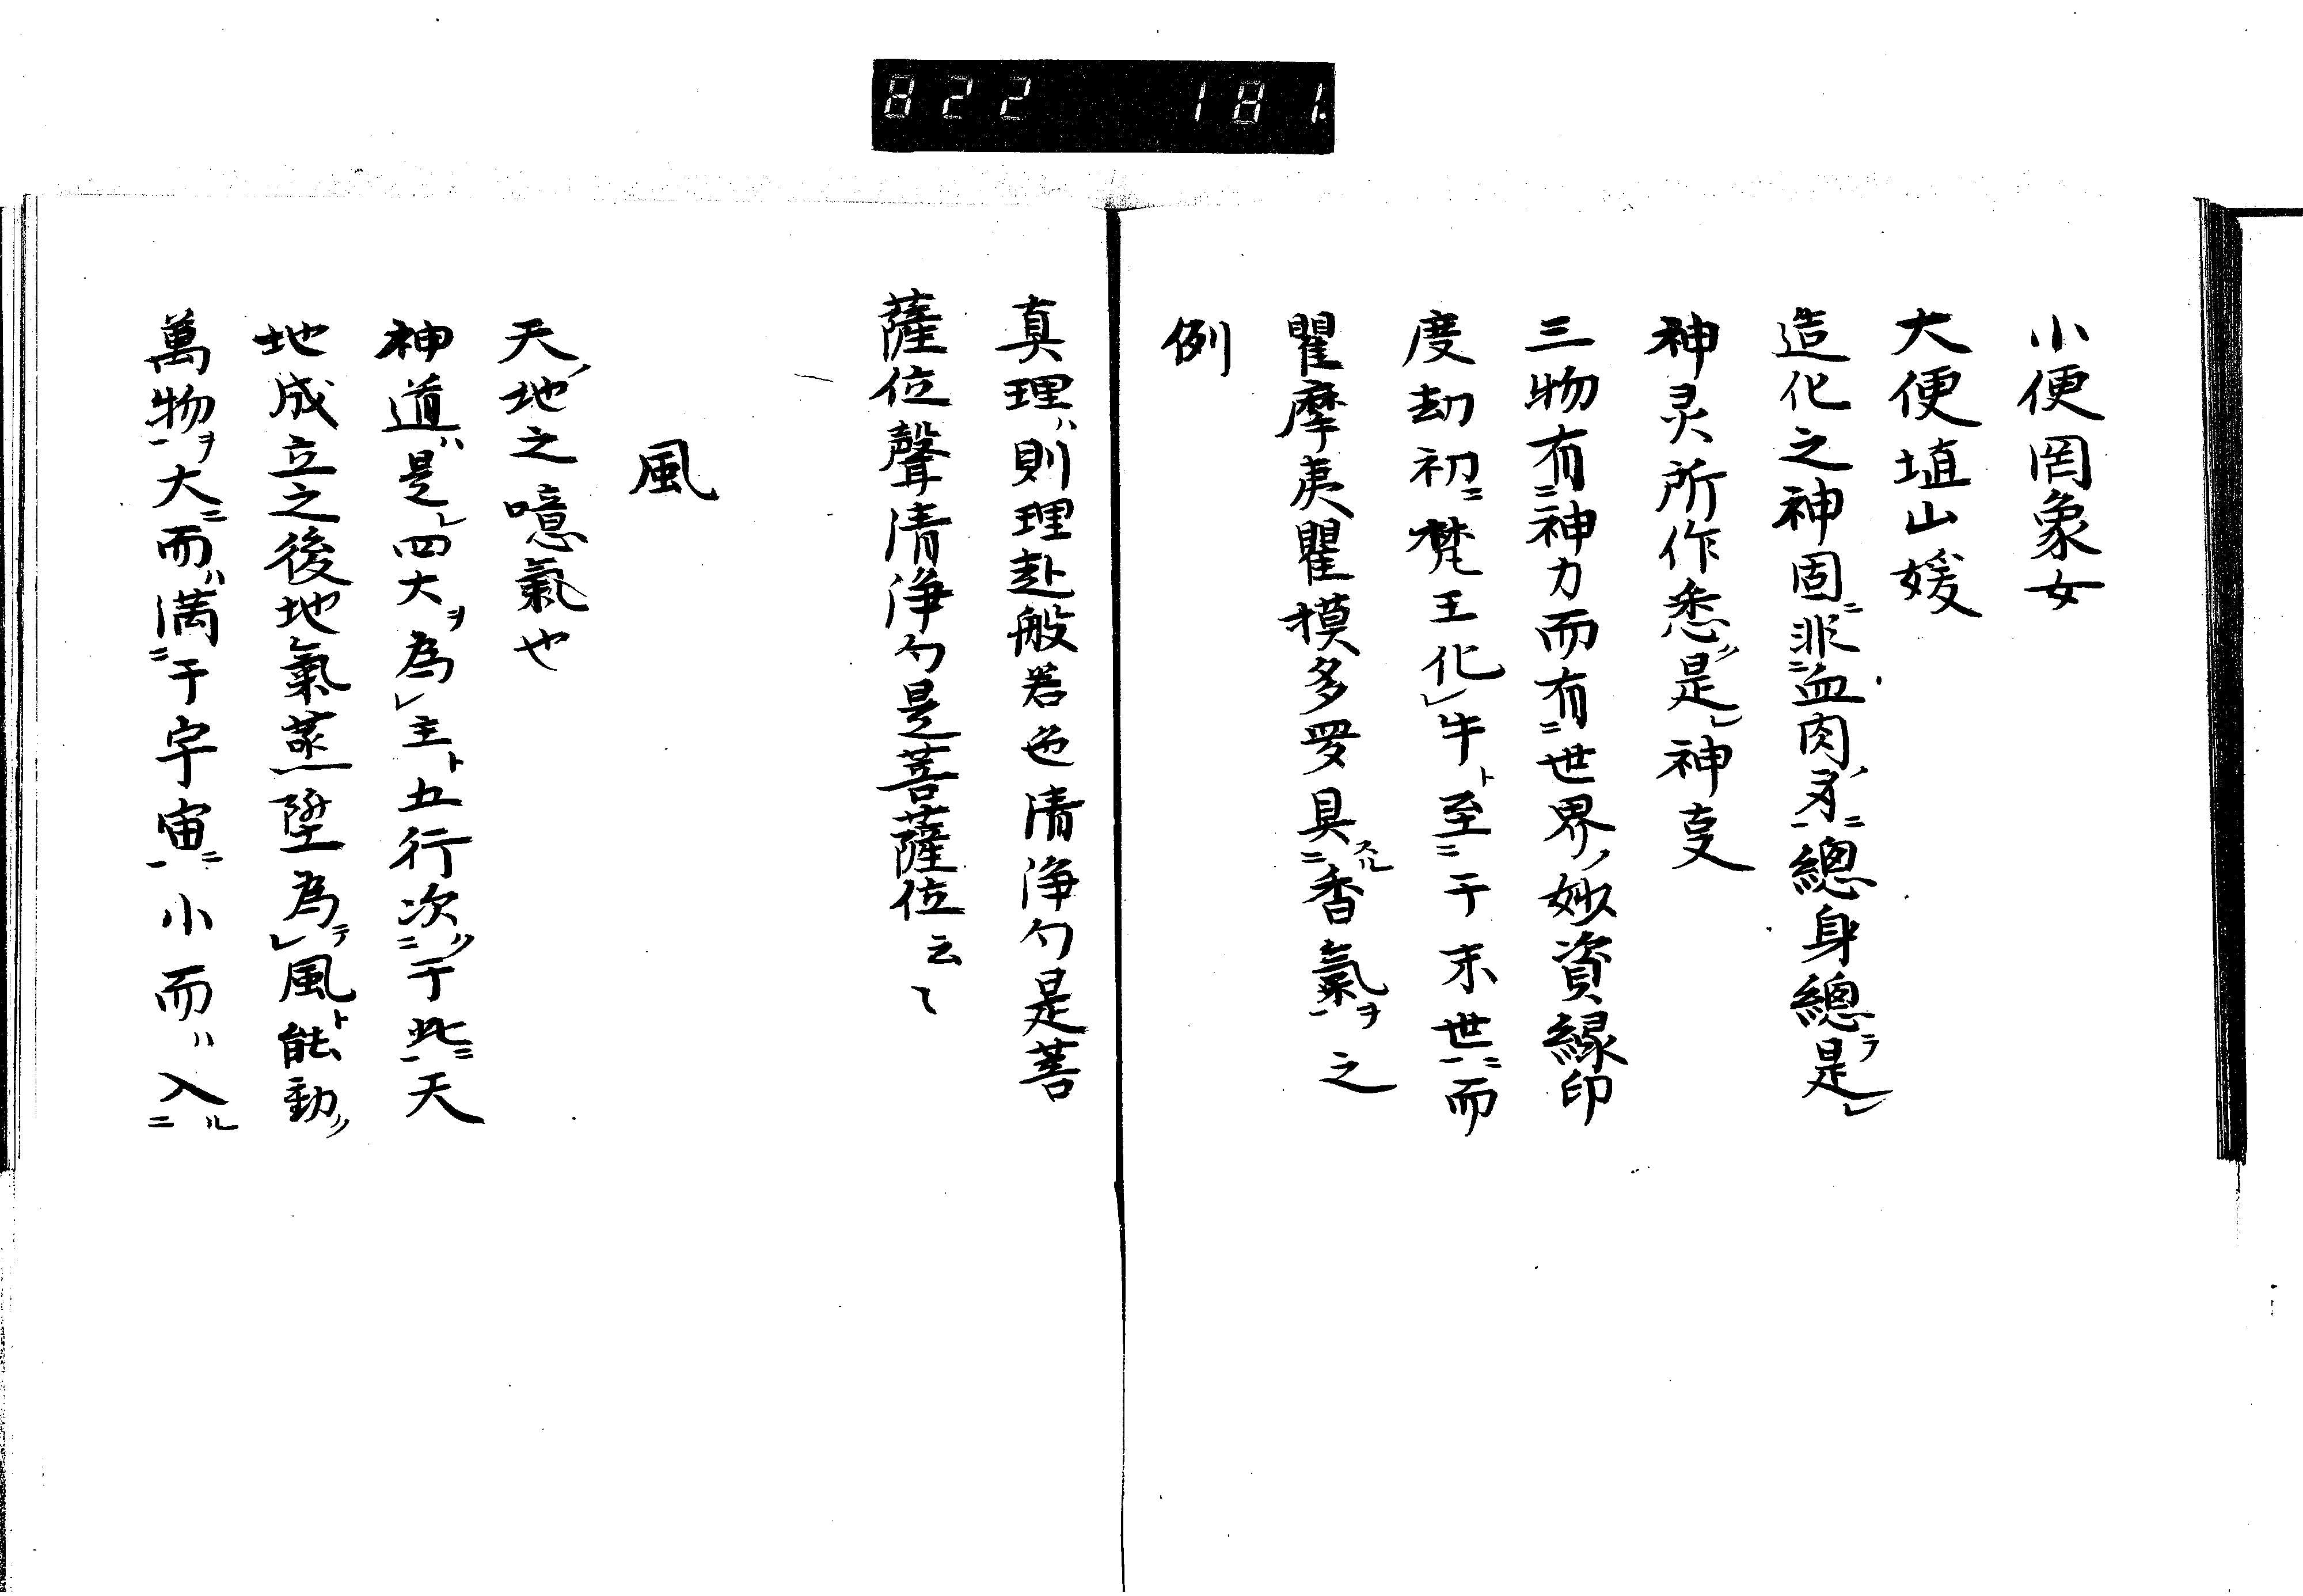 822 181.
小便罔象女
大便埴山媛
造化之神固ニ非ニ血肉ノ身ニ一總身總テ是レ
神灵所作悉ク是レ神変
三物有ニ神力而有ニ世界ノ妙資縁印
度劫初ニ梵王化レ牛ト至ニ于末世ニ一而
瞿摩夷瞿摸多羅具スルニ香氣ヲ一之
例
真理ハ則理赴般若色清浄勺是菩
薩位聲清浄勺是菩薩位云〻
風
天ノ地之噫氣也
神道ハ是レ四大ヲ為レ主ト五行次クニ于此ニ一天
地成立之後地氣蒸墜為テレ風ト能動ク
萬物ヲ一大ニ而ハ満ニ于宇宙ニ一小而ハ入ルニ